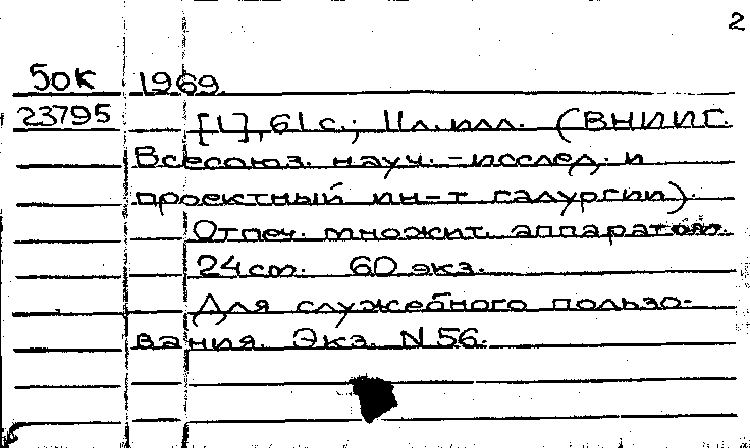 2
50К 1969
23795 [1], 61 с.; 11 л. илл. (ВНИИГ.
Всесоюз. науч.-исслед. и
проектный ин-т галургии).
Отпеч. множит. аппаратом.
24 см. 60 экз.
Для служебного пользо-
вания. Экз. N 56.